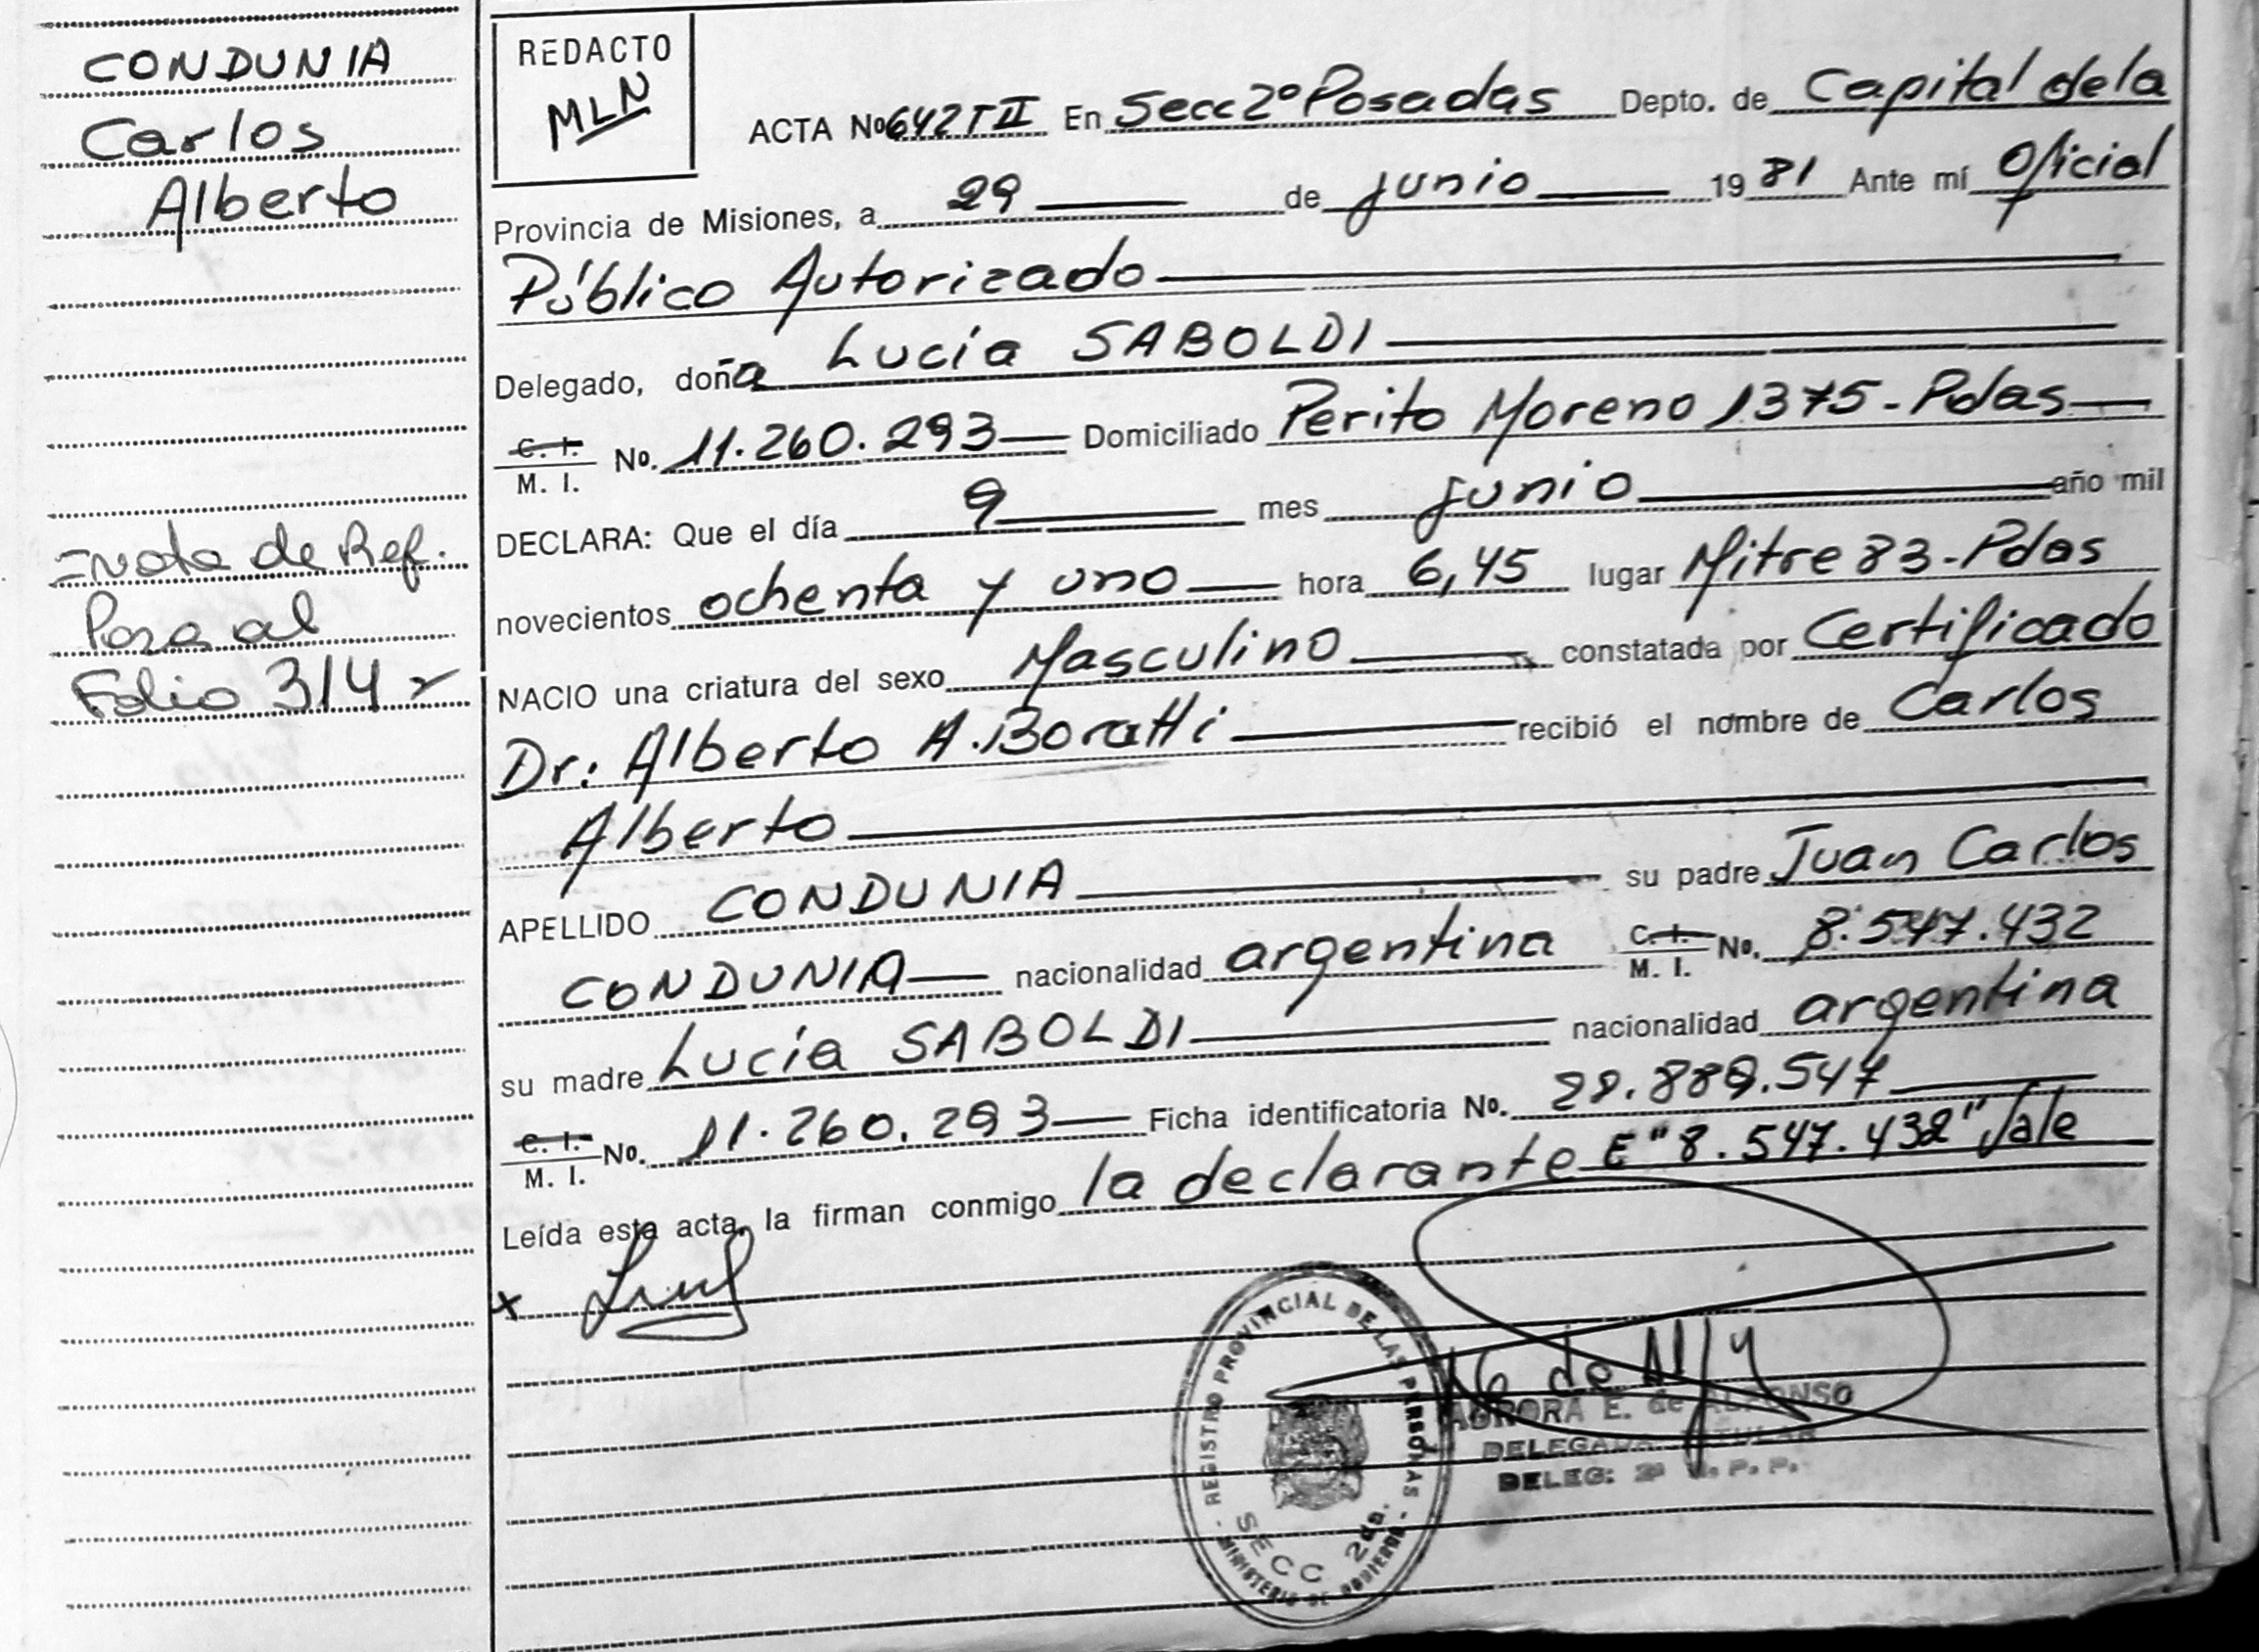 CONDUNIA
Carlos
Alberto
=Nota de Ref.
Pasa al
Folio 314
REDACTO
MLN
ACTA Nº 642 T II En Secc 2º Posadas Depto. de Capital de la
Provincia de Misiones, a 29 de junio 1981 Ante mí Oficial
Público Autorizado
Delegado, doña Lucia SABOLDI
C. I.
M. I. Nº. 11.260.293 Domiciliado Perito Moreno 1375-Pdas
DECLARA: Que el día 9 mes junio año mil
novecientos ochenta y uno hora 6,45 lugar Mitre 83-Pdas
NACIO una criatura del sexo Masculino constatada por Certificado
Dr: Alberto A. Boratti recibió el nombre de Carlos
Alberto
APELLIDO CONDUNIA su padre Juan Carlos
CONDUNIA nacionalidad argentina C. I. M. I. Nº. 8.547.432
su madre Lucia SABOLDI nacionalidad argentina
C. I.
M. I. Nº. 11.260.293 Ficha identificatoria Nº. 28.889.547
Leída esta acta, la firman conmigo la declarante E"8.547.432" Vale
x
REGISTRO PROVINCIAL DE LAS PERSONAS - MINISTERIO DE GOBIERNO -
SECC 2da.
AURORA E. de ALFONSO
DELEGADA TITULAR
DELEG: 2ª R. P. P.